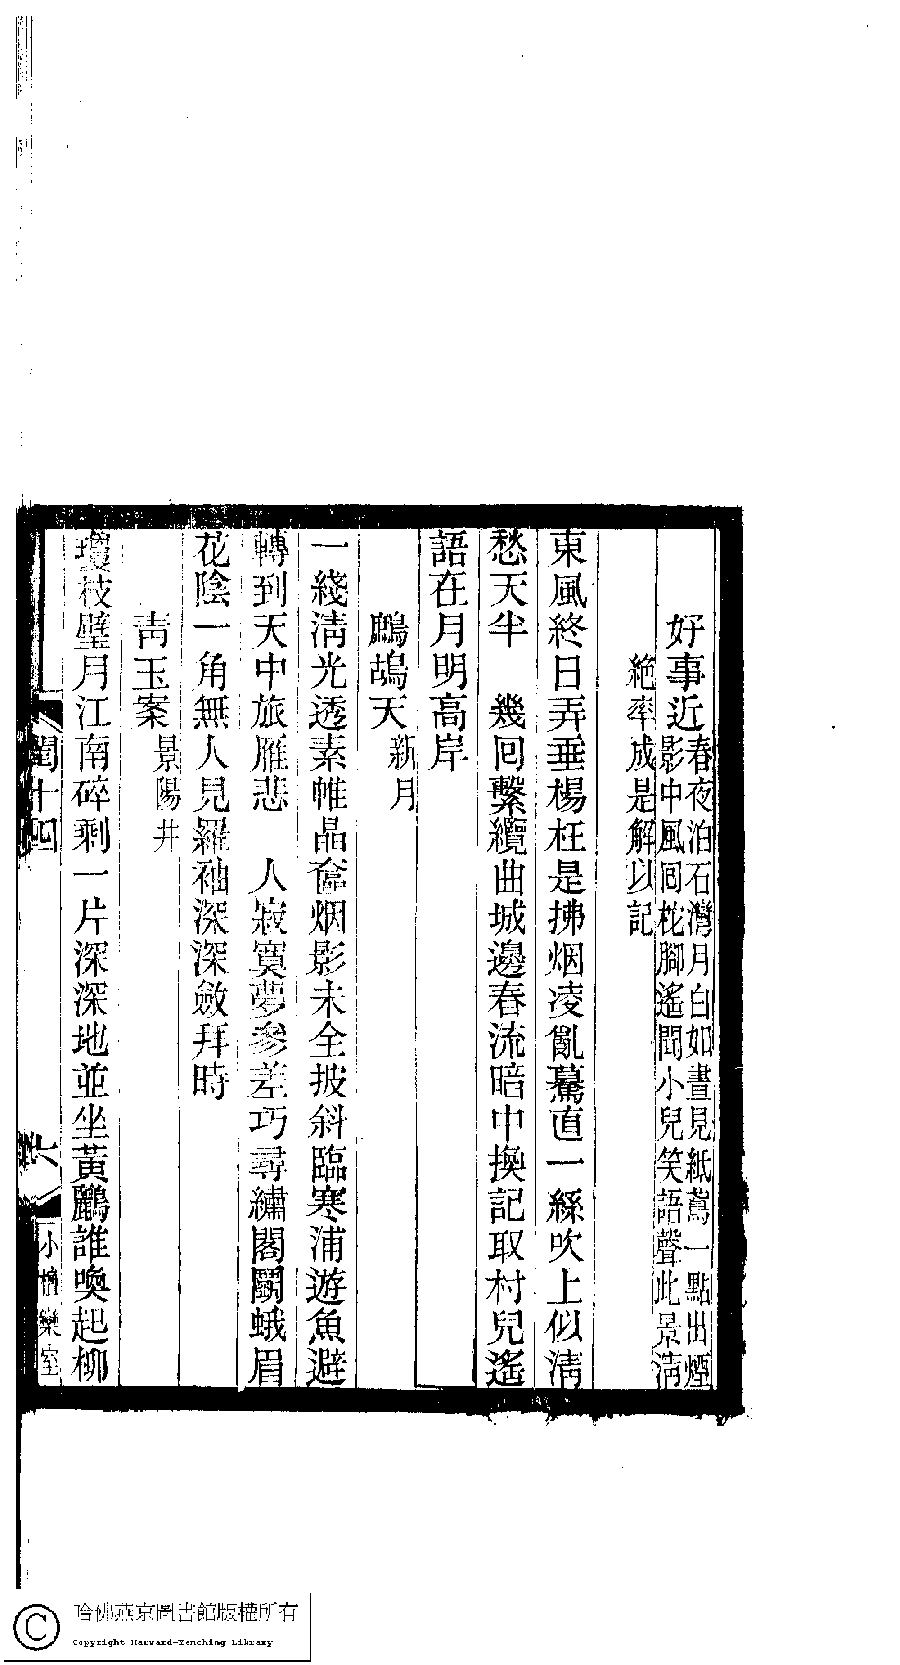 好事近 春夜泊石灣月白如晝見紙鳶一點出煙
影中風回柁腳遙聞小兒笑語聲此景淸
絶率成是解以記
東風終日弄垂楊枉是拂烟凌亂驀直一絲吹上似淸
愁天半　幾回繫纜曲城邊春流暗中換記取村兒遙
語在月明高岸
鷓鴣天 新月
一綫淸光透素帷晶奩烟影未全披斜臨寒浦遊魚避
轉到天中旅雁悲　人寂寞夢參差巧尋繡閣鬭蛾眉
花陰一角無人見羅袖深深斂拜時
靑玉案 景陽井
瓊枝璧月江南碎剩一片深深地並坐黃鸝誰喚起柳
閨十四
六
小檀欒室
哈佛燕京圖書館版權所有
Copyright Harvard-Yenching Library